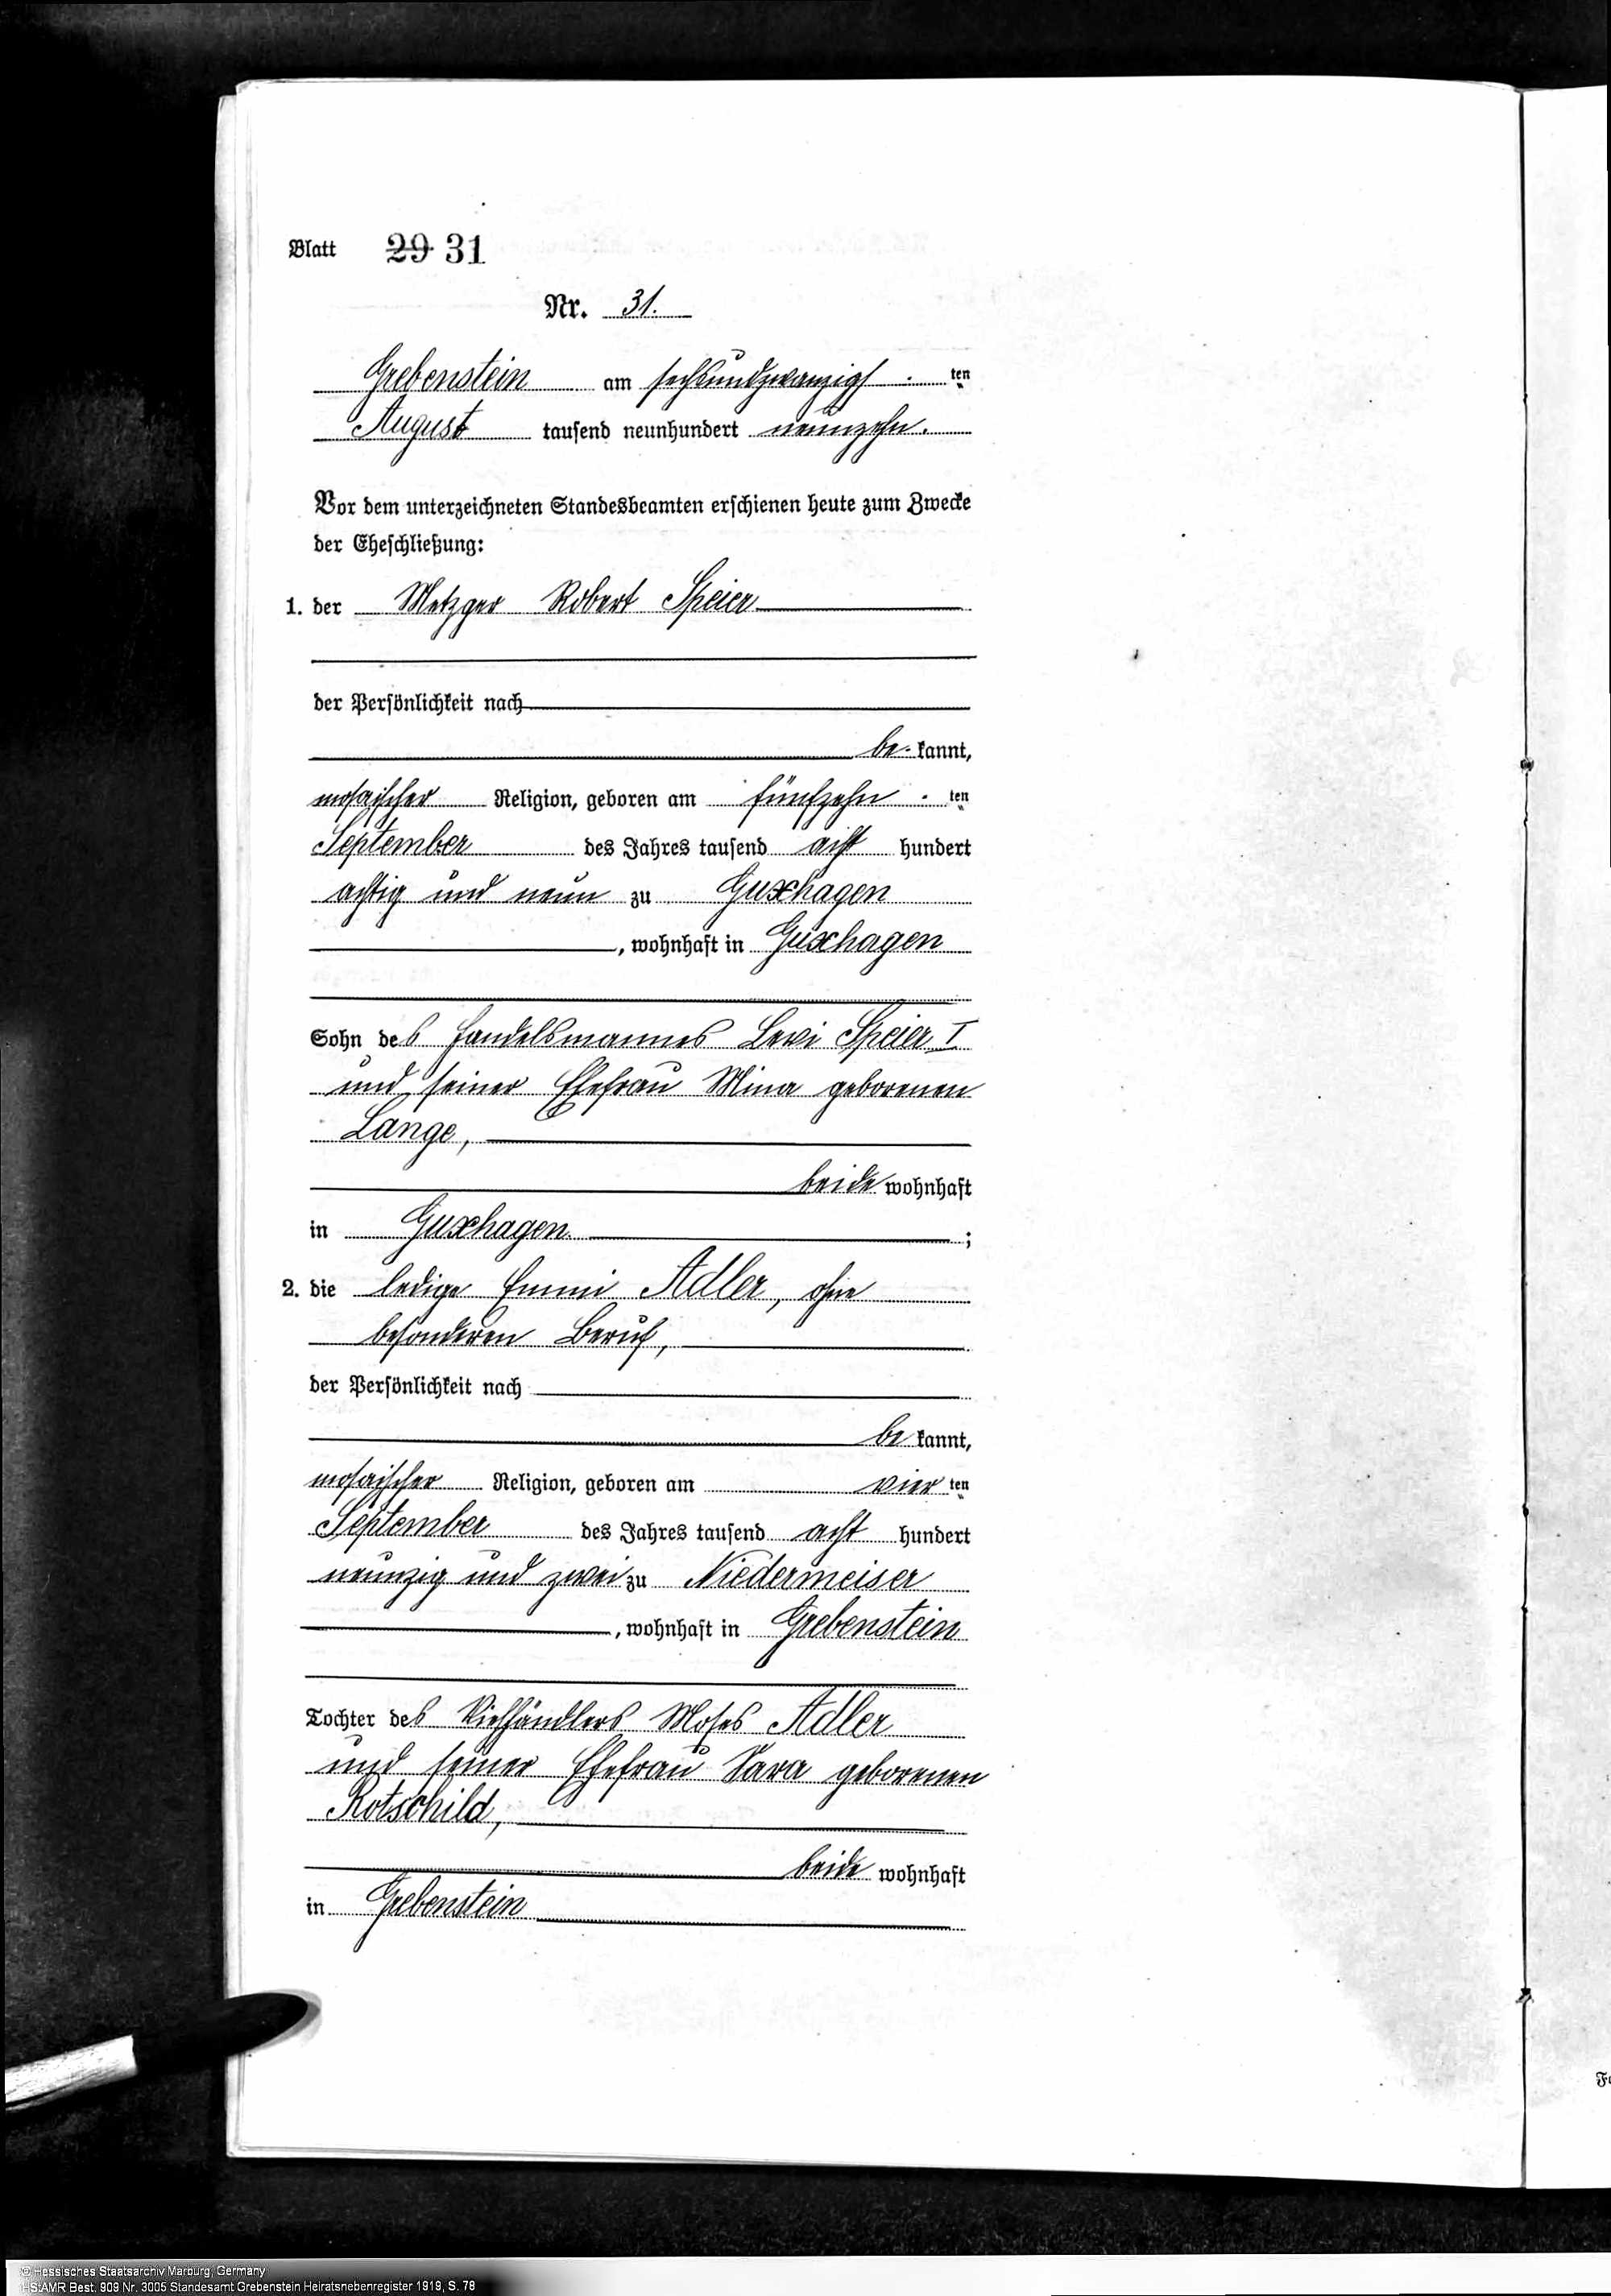 Blatt 29 31
Nr. 31.
Grebenstein am sechsundzwanzigs ten
August tausend neunhundert neunzehn.
Vor dem unterzeichneten Standesbeamten erschienen heute zum Zwecke
der Eheschließung:
1. der Metzger Robert Speier
der Persönlichkeit nach
be kannt,
mosaischer Religion, geboren am fünfzehn ten
September des Jahres tausend acht hundert
achtzig und neun zu Guxhagen
, wohnhaft in Guxhagen
Sohn des Handelsmannes Levi Speier I
und seiner Ehefrau Mina geborenen
Lange,
beide wohnhaft
in Guxhagen ;
2. die ledige Emmi Adler, ohne
besonderen Beruf,
der Persönlichkeit nach
be kannt,
mosaischer Religion, geboren am vier ten
September des Jahres tausend acht hundert
neunzig und zwei zu Niedermeiser
, wohnhaft in Grebenstein
Tochter des Viehhändlers Moses Adler
und seiner Ehefrau Sara geborenen
Rotschild,
beide wohnhaft
in Grebenstein
© Hessisches Staatsarchiv Marburg, Germany
HStAMR Best. 909 Nr. 3005 Standesamt Grebenstein Heiratsnebenregister 1919, S. 78